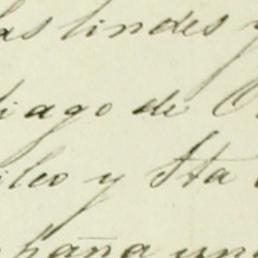 as lindes y
iago de
ileo y Sta
paña una